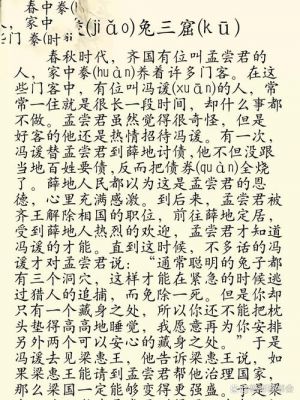 春中豢(h
人，家中
些门豢(时
狡(jiǎo)兔三窟(kū)
春秋时代，齐国有位叫孟尝君的
人，家中豢(huàn)养着许多门客。在这
些门客中，有位叫冯谖(xuān)的人，常
常一住就是很长一段时间，却什么事都
不做。孟尝君虽然觉得很奇怪，但是
好客的他还是热情招待冯谖。有一次，
冯谖替孟尝君到薛地讨债，他不但没跟
当地百姓要债，反而把债券(quàn)全烧
了。薛地人民都以为这是孟尝君的恩
德，心里充满感激。到后来，孟尝君被
齐王解除相国的职位，前往薛地定居，
受到薛地人热烈的欢迎，孟尝君才知道
冯谖的才能。直到这时候，不多话的冯
谖才对孟尝君说：“通常聪明的兔子都
有三个洞穴，这样才能在紧急的时候逃
过猎人的追捕，而免除一死。但是你却
只有一个藏身之处，所以你还不能把枕
头垫得高高地睡觉，我愿意再为你安排
另外两个可以安心的藏身之处。”于是
冯谖去见梁惠王，他告诉梁惠王说，如
果梁惠王能请到孟尝君帮他治理国家，
那么梁国一定能够变得更强盛。于是梁